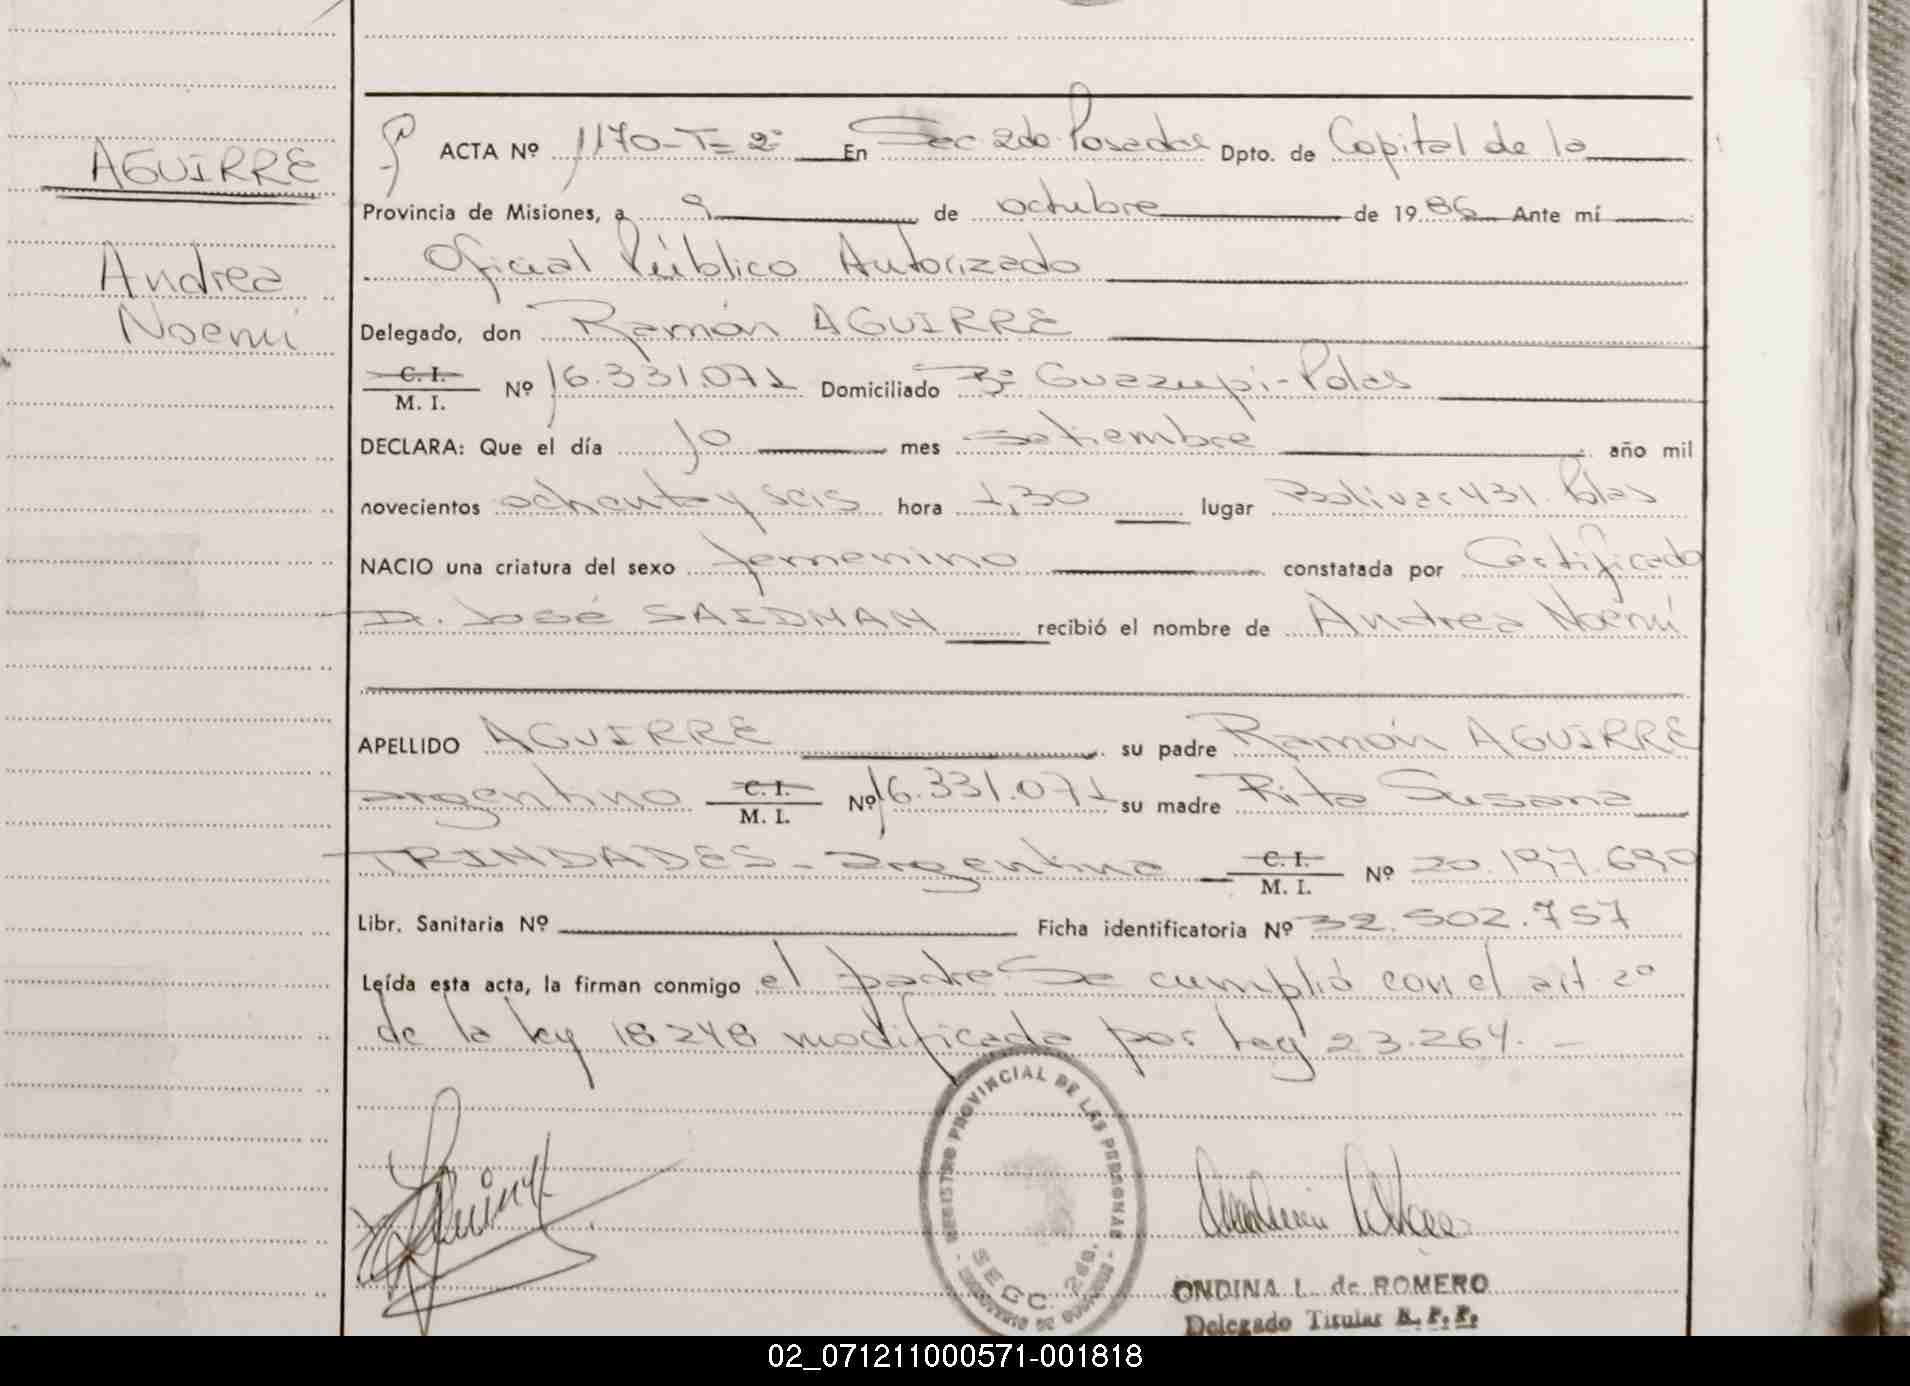 AGUIRRE
Andrea
Noemí
ACTA Nº 1170-T= 2º En Sec 2do. Posadas Dpto. de Capital de la
Provincia de Misiones, a 9 de octubre de 1986 Ante mí
Oficial Público Autorizado
Delegado, don Ramón AGUIRRE
C. I.
M. I. Nº 16.331.071 Domiciliado Bº Guazupi-Pdas
DECLARA: Que el día 10 mes setiembre año mil
novecientos ochenta y seis hora 1,30 lugar Bolivar 431. Pdas
NACIO una criatura del sexo femenino constatada por Certificado
Dr. José SAIDMAN recibió el nombre de Andrea Noemí
APELLIDO AGUIRRE su padre Ramón AGUIRRE
argentino C. I. M. I. Nº 16.331.071 su madre Rita Susana
TRINDADES - argentina C. I. M. I. Nº 20.197.690
Libr. Sanitaria Nº Ficha identificatoria Nº 32.502.757
Leída esta acta, la firman conmigo el padre Se cumplió con el art. 2º
de la ley 18248 modificada por ley 23.264. -
REGISTRO PROVINCIAL DE LAS PERSONAS
SECC. 2da.
ONDINA L. de ROMERO
Delegado Titular R. P. P.
02_071211000571-001818